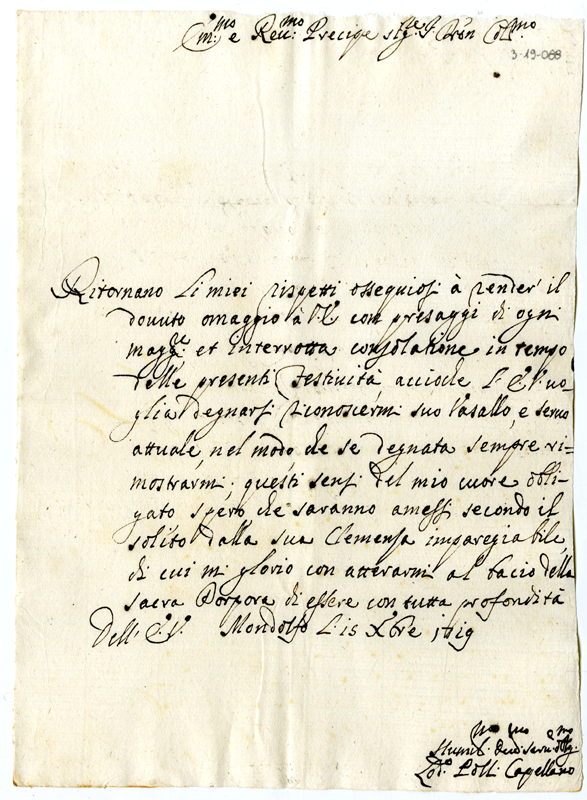 Em:mo e Reu:mo Precipe sig:re P'ron Coll:mo
3-19-068
Ritornano li miei rispetti ossequiosi à render' il
douuto omaggio à V.E. con presaggi di ogni
magg:re et interrotta consolatione in tempo
delle presenti festiuità acciocle l'E.V. uo-
glia degnarsi riconoscermi suo Vasallo, e seruo
attuale, nel modo che se degnata sempre ri=
mostrarmi; questi sensi del mio cuore obli-
gato spero che saranno amessi secondo il
solito dalla sua Clemensa imparegiabile
di cui mi glorio con atterarmi al bacio della
sacra Porpora di essere con tutta profondità
Dell'E.V. Mondolfo li 15 Xbre 1719
Humil:mo Deuo:mo seru:e obl:mo
Lod:o Poll: Capellano